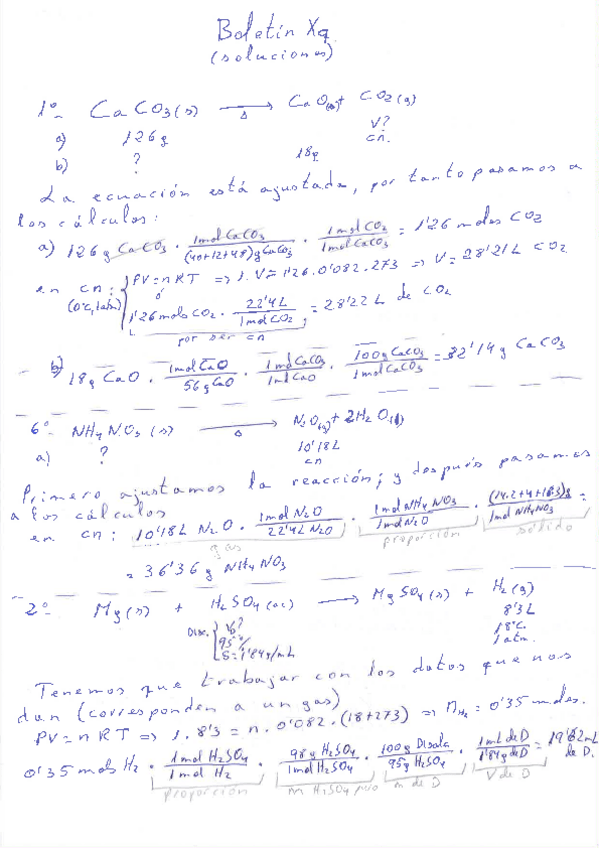 Boletín Xq
(soluciones)
1º- CaCO3(s) ⟶ CaO(s) + CO2(g)
Δ
a) 126g V?
cn.
b) ? 18g
La ecuación está ajustada, por tanto pasamos a
los cálculos:
a) 126 g CaCO3 · 1mol CaCO3/(40+12+48)g CaCO3 · 1mol CO2/1mol CaCO3 = 1'26 moles CO2
en cn: { PV=nRT ⇒ 1.V=1'26.0'082.273 ⇒ V=28'21L CO2
(0ºC,1atm) ó
1'26 moles CO2 · 22'4L/1mol CO2 = 28'22 L de CO2
por ser cn
b) 18g CaO · 1mol CaO/56gCaO · 1mol CaCO3/1mol CaO · 100g CaCO3/1mol CaCO3 = 32'14 g CaCO3
6º- NH4NO3(s) ⟶ N2O(g) + 2H2O(l)
Δ
a) ? 10'18L
cn
Primero ajustamos la reacción; y después pasamos
a los cálculos
en cn: 10'18L N2O · 1mol N2O/22'4L N2O · 1mol NH4NO3/1mol N2O · (14.2+4+16.3)g/1mol NH4NO3 =
gas proporción sólido
= 36'36 g NH4NO3
2º- Mg(s) + H2SO4(ac) ⟶ MgSO4(s) + H2(g)
Disc. { V? 8'3L
95% 18ºC.
δ=1'84g/mL 1atm.
Tenemos que trabajar con los datos que nos
dan (corresponden a un gas)
PV=nRT ⇒ 1.8'3 = n.0'082.(18+273) ⇒ nH2 = 0'35 moles.
0'35 mols H2 · 1mol H2SO4/1mol H2 · 98g H2SO4/1mol H2SO4 · 100g Disola/95g H2SO4 · 1mL de D/1'84g de D = 19'62mL de D.
proporción m H2SO4 puro m de D V de D